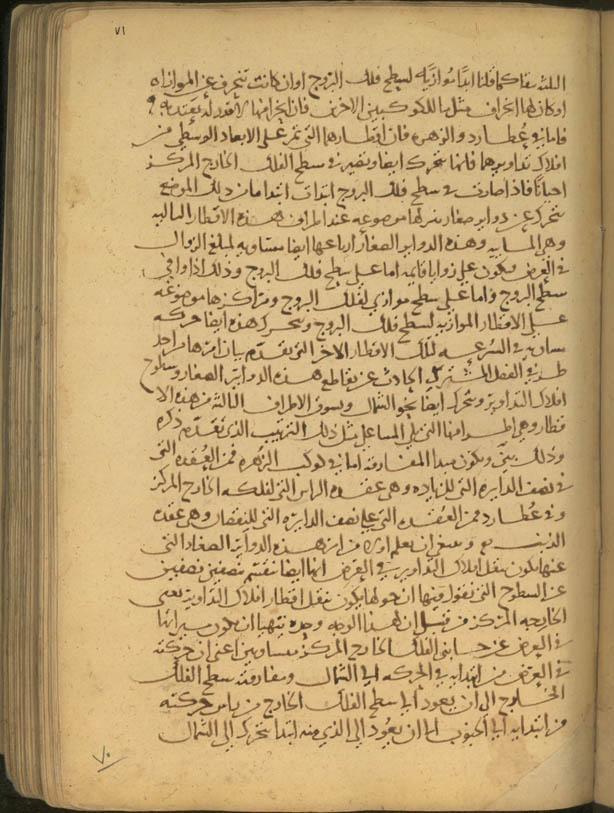 ٧١
الثلثه فانها كما قلنا ابدا موازيه لسطح فلك البروج او ان كانت تنحرف عن الموازاه
او كان لها انحراف مثل ما للكوكبين الاخرين فان انحرافها لا قدر له يعتد به
فاما في عطارد والزهره فان اقطارها التي تمر على الابعاد الوسطى من
افلاك تداويرهما فانها تتحرك ايضا وتصير في سطح الفلك الخارج المركز
احيانا فاذا صارت في سطح فلك البروج ابتدات ابتدا ما من ذلك الموضع
تتحرك عن دوائر صغار موضوعه عند اطراف هذه الاقطار التاليه
وهي المسايه وهذه الدوائر الصغار ارباعها ايضا مساويه لمبلغ الزوال
في العرض وتكون على زوايا قايمه اما على سطح فلك البروج وذلك اذا وافى
سطح البروج واما على سطح موازي لفلك البروج ومراكزها موضوعه
على الاقطار الموازيه لسطح فلك البروج وتتحرك هذه ايضا حركه
مساويه في السرعه لتلك الاقطار الاخر التي تقدم بيان امرها من احد
طرفي الفصل المشترك الحادث عن تقاطع هذه الدوائر الصغار وسطوح
افلاك التداوير وتتحرك ايضا نحو الشمال ويسوق الاطراف التاليه من هذه الا
قطار وهي الطرف منها التي على مثل ذلك الترتيب الذي تقدم ذكره
وذلك بين ويكون مبدا المفارقه اما في كوكب الزهره فمن العقده التي
في نصف الدايره التي للزياده وهي عقده الراس التي لفلكه الخارج المركز
وفي عطارد من العقده التي على نصف الدايره التي للنقصان وهي عقده
الذنب وينبغي ان يعلم ايضا من امر هذه الدوائر الصغار التي
عنها يكون تنقل افلاك التداوير في العرض انها ايضا تنقسم بنصفين نصفين
عن السطوح التي نقول فيها ان حولها يكون تنقل اقطار افلاك التداوير يعني
الخارجه المركز من قبل ان بهذا الوجه وحده تتهيا ان يكون مسيراتها
في العرض عن جنبتي الفلك الخارج المركز متساويين اعني ان حركته
في العرض من ابتدايه في الحركه الى الشمال ومفارقته سطح الفلك
الخارج الى ان يعود الى سطح الفلك الخارج من باس حركته
من ابتدايه الى الجنوب الى ان يعود الى الذي منه ابتدا يتحرك الى الشمال
٧٠